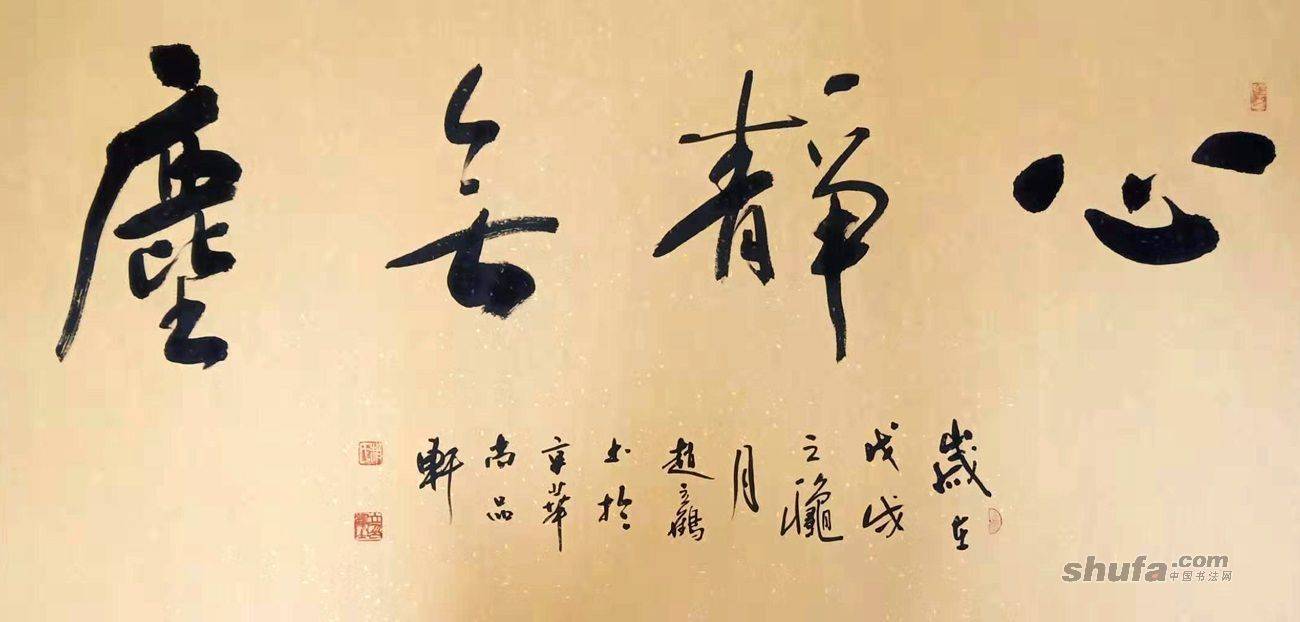 心靜無塵
歲在
戊戌
之龝
月
趙立鶴
书於
京華
尚品
軒
shufa.com
中国书法网